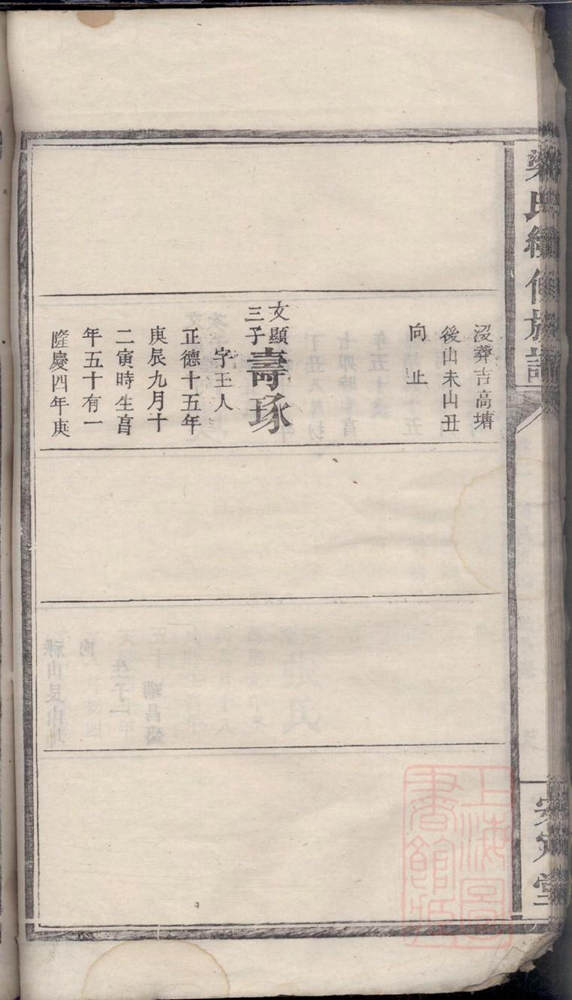 梁氏續修族譜
安定堂
沒葬吉高塘
後山未山丑
向止
文顯
三子
壽琢
字玉人
正德十五年
庚辰九月十
二寅時生享
年五十有一
隆慶四年庚
上海圖
書館藏